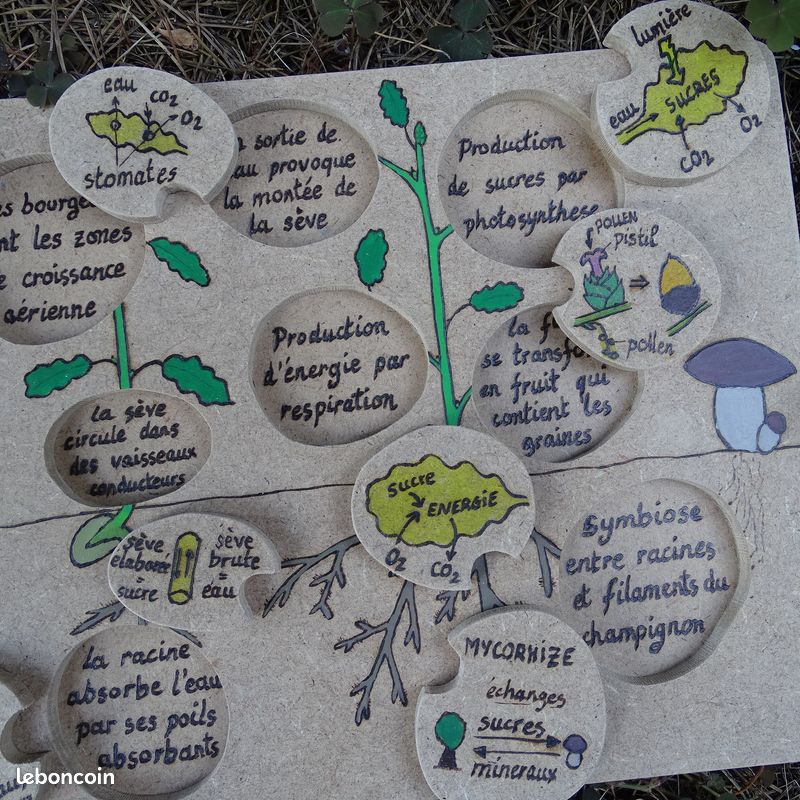 eau
CO2
O2
stomates
sortie de
provoque
la montée de
la sève
Production
de sucres par
photosynthese
lumière
eau
SUCRES
O2
CO2
les zones
croissance
aérienne
POLLEN
pistil
pollen
Production
d'énergie par
respiration
la
se
en fruit qui
contient les
graines
la sève
circule dans
des vaisseaux
conducteurs
sucre
ENERGIE
O2
CO2
sève
élaborée
=
sucre
sève
brute
=
eau
Symbiose
entre racines
et filaments du
champignon
La racine
absorbe l'eau
par ses poils
absorbants
MYCORHIZE
échanges
sucres
mineraux
leboncoin